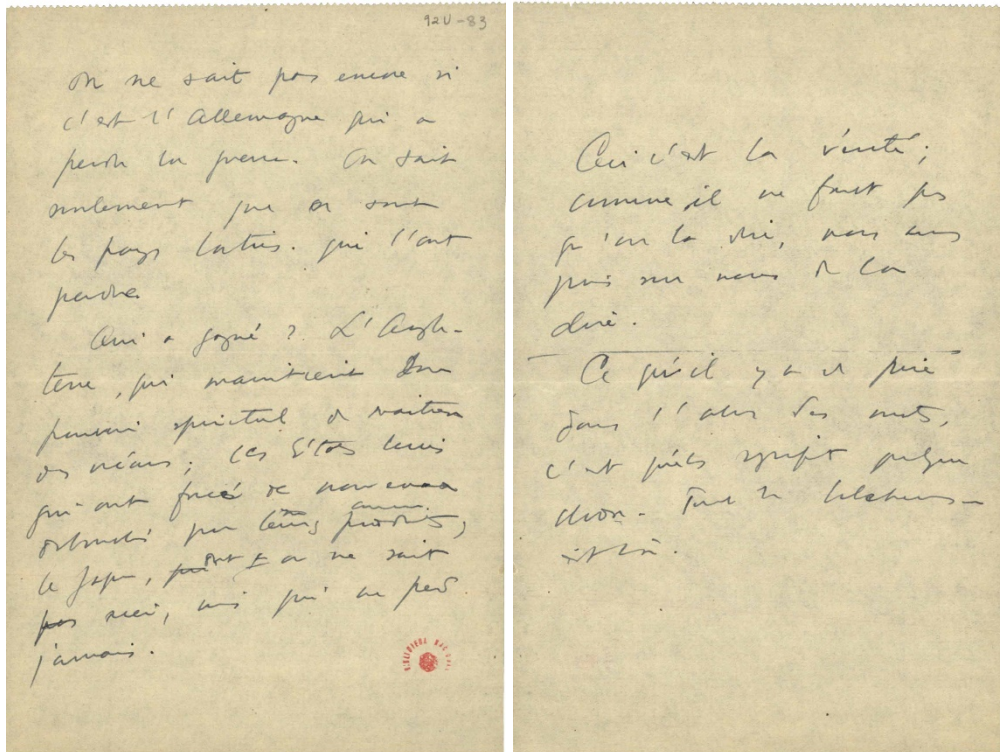 92U-83
On ne sait pas encore si
c'est l'Allemagne qui a
perdu la guerre. On sait
seulement que ce sont
les pays latins qui l'ont
perdue
Qui a gagné? L'Angle-
terre, qui maintient son
pouvoir spirituel de maitresse
des océans; les États Unis
qui ont forcé de nouveaux
débouchés pour leurs produits,
le Japon, dont on ne sait
pas rien, mais qui ne perd
jamais.
Ceci c'est la vérité;
comme il ne faut pas
qu'on la dise, nous avons
pris sur nous de la
dire.
Ce qu'il y a de pire
dans l'abus des mots,
c'est qu'ils signifient quelque
chose. Tout le
est là.